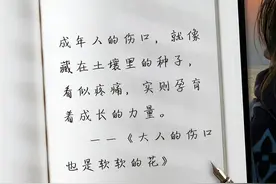 成年人的伤口，就像
藏在土壤里的种子，
看似疼痛，实则孕育
着成长的力量。
——《大人的伤口
也是软软的花》